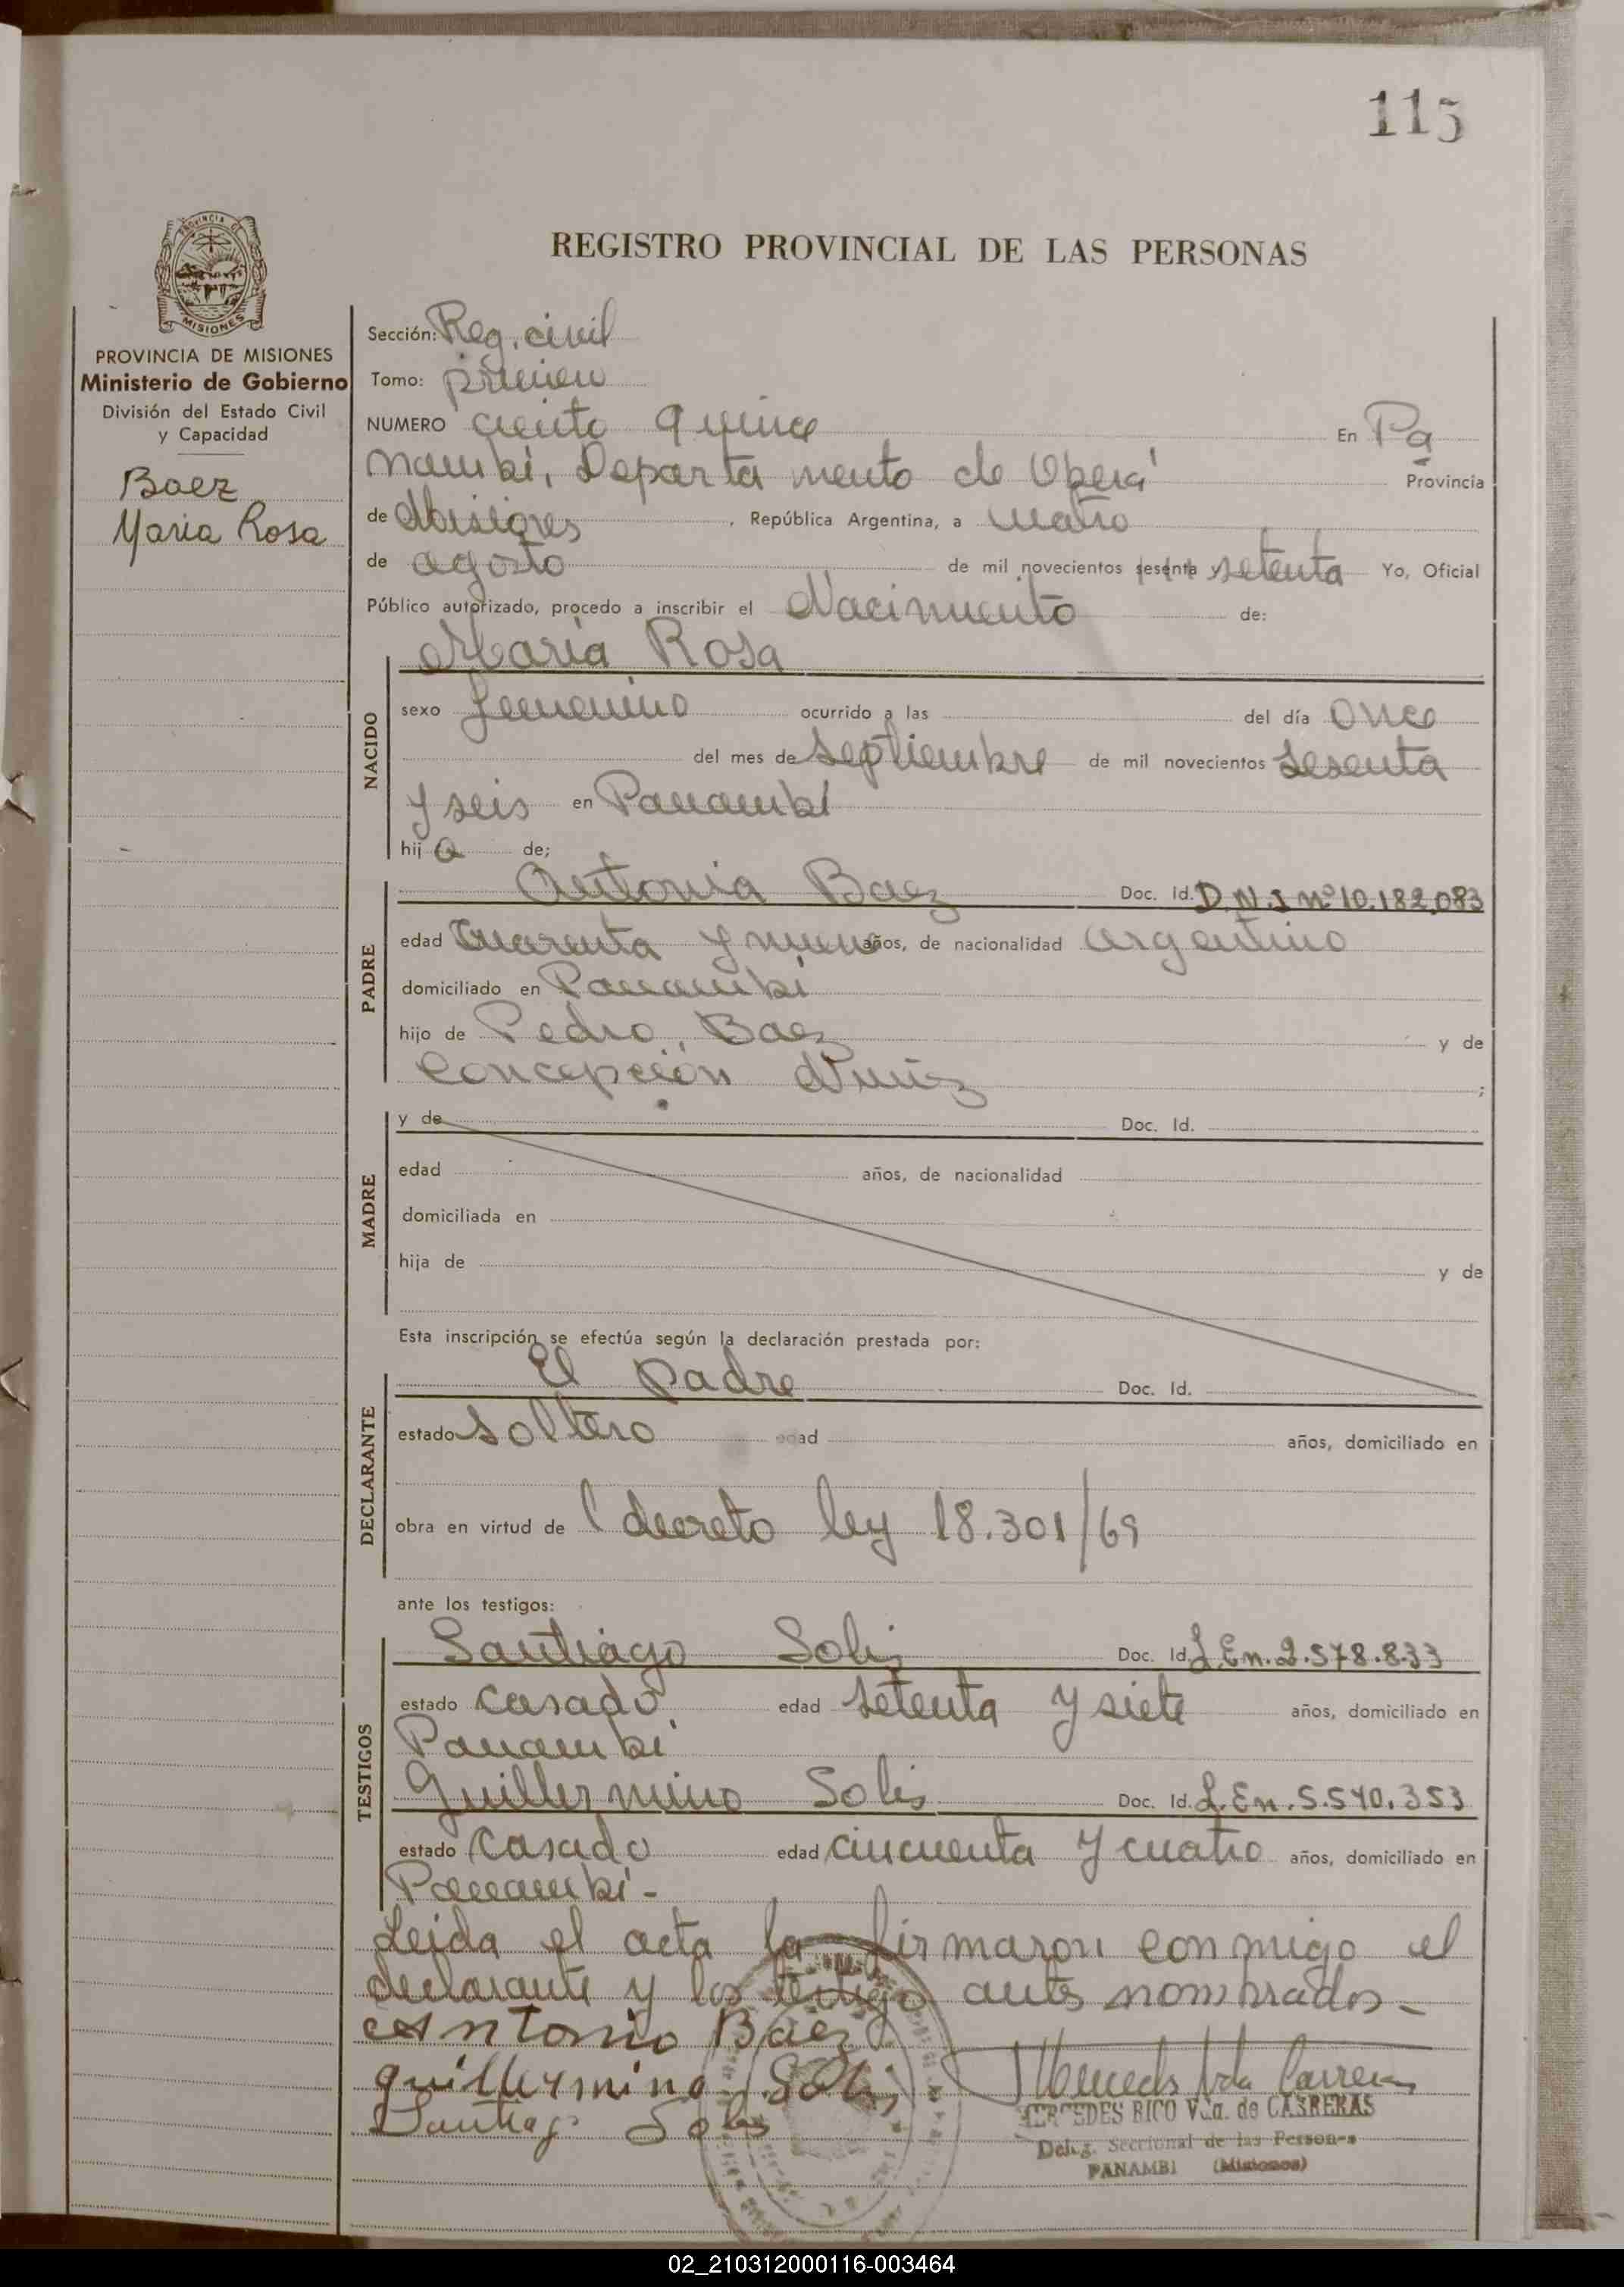 115
PROVINCIA DE
MISIONES
REGISTRO PROVINCIAL DE LAS PERSONAS
PROVINCIA DE MISIONES
Ministerio de Gobierno
División del Estado Civil
y Capacidad
Baez
Maria Rosa
Sección: Reg. civil
Tomo: primero
NUMERO ciento quince En Pa
nambí, Departamento de Oberá Provincia
de Misiones, República Argentina, a cuatro
de agosto de mil novecientos sesenta y setenta Yo, Oficial
Público autorizado, procedo a inscribir el Nacimiento de:
Maria Rosa
NACIDO
sexo femenino ocurrido a las del día once
del mes de septiembre de mil novecientos sesenta
y seis en Panambí
hija de;
PADRE
Antonia Baez Doc. Id. D.N.I nº 10.182.083
edad cuaranta y nueve años, de nacionalidad argentino
domiciliado en Panambí
hijo de Pedro Baez y de
Concepción Nuñez ;
MADRE
y de Doc. Id.
edad años, de nacionalidad
domiciliada en
hija de y de
Esta inscripción se efectúa según la declaración prestada por:
DECLARANTE
El padre Doc. Id.
estado soltero edad años, domiciliado en
obra en virtud de decreto ley 18.301/69
ante los testigos:
TESTIGOS
Santiago Solis Doc. Id. L.En. 2.578.833
estado casado edad setenta y siete años, domiciliado en
Panambí
Guillermino Solis Doc. Id. L.En. 5.540.353
estado casado edad cincuenta y cuatro años, domiciliado en
Panambí-
Leida el acta la firmaron conmigo el
declarante y los testigo antes nombrados-
Antonio Baez
guillermino Solis
Santiago Solis
MERCEDES RICO Vda. de CARRERAS
Deleg. Seccional de las Personas
PANAMBI (Misiones)
02_210312000116-003464